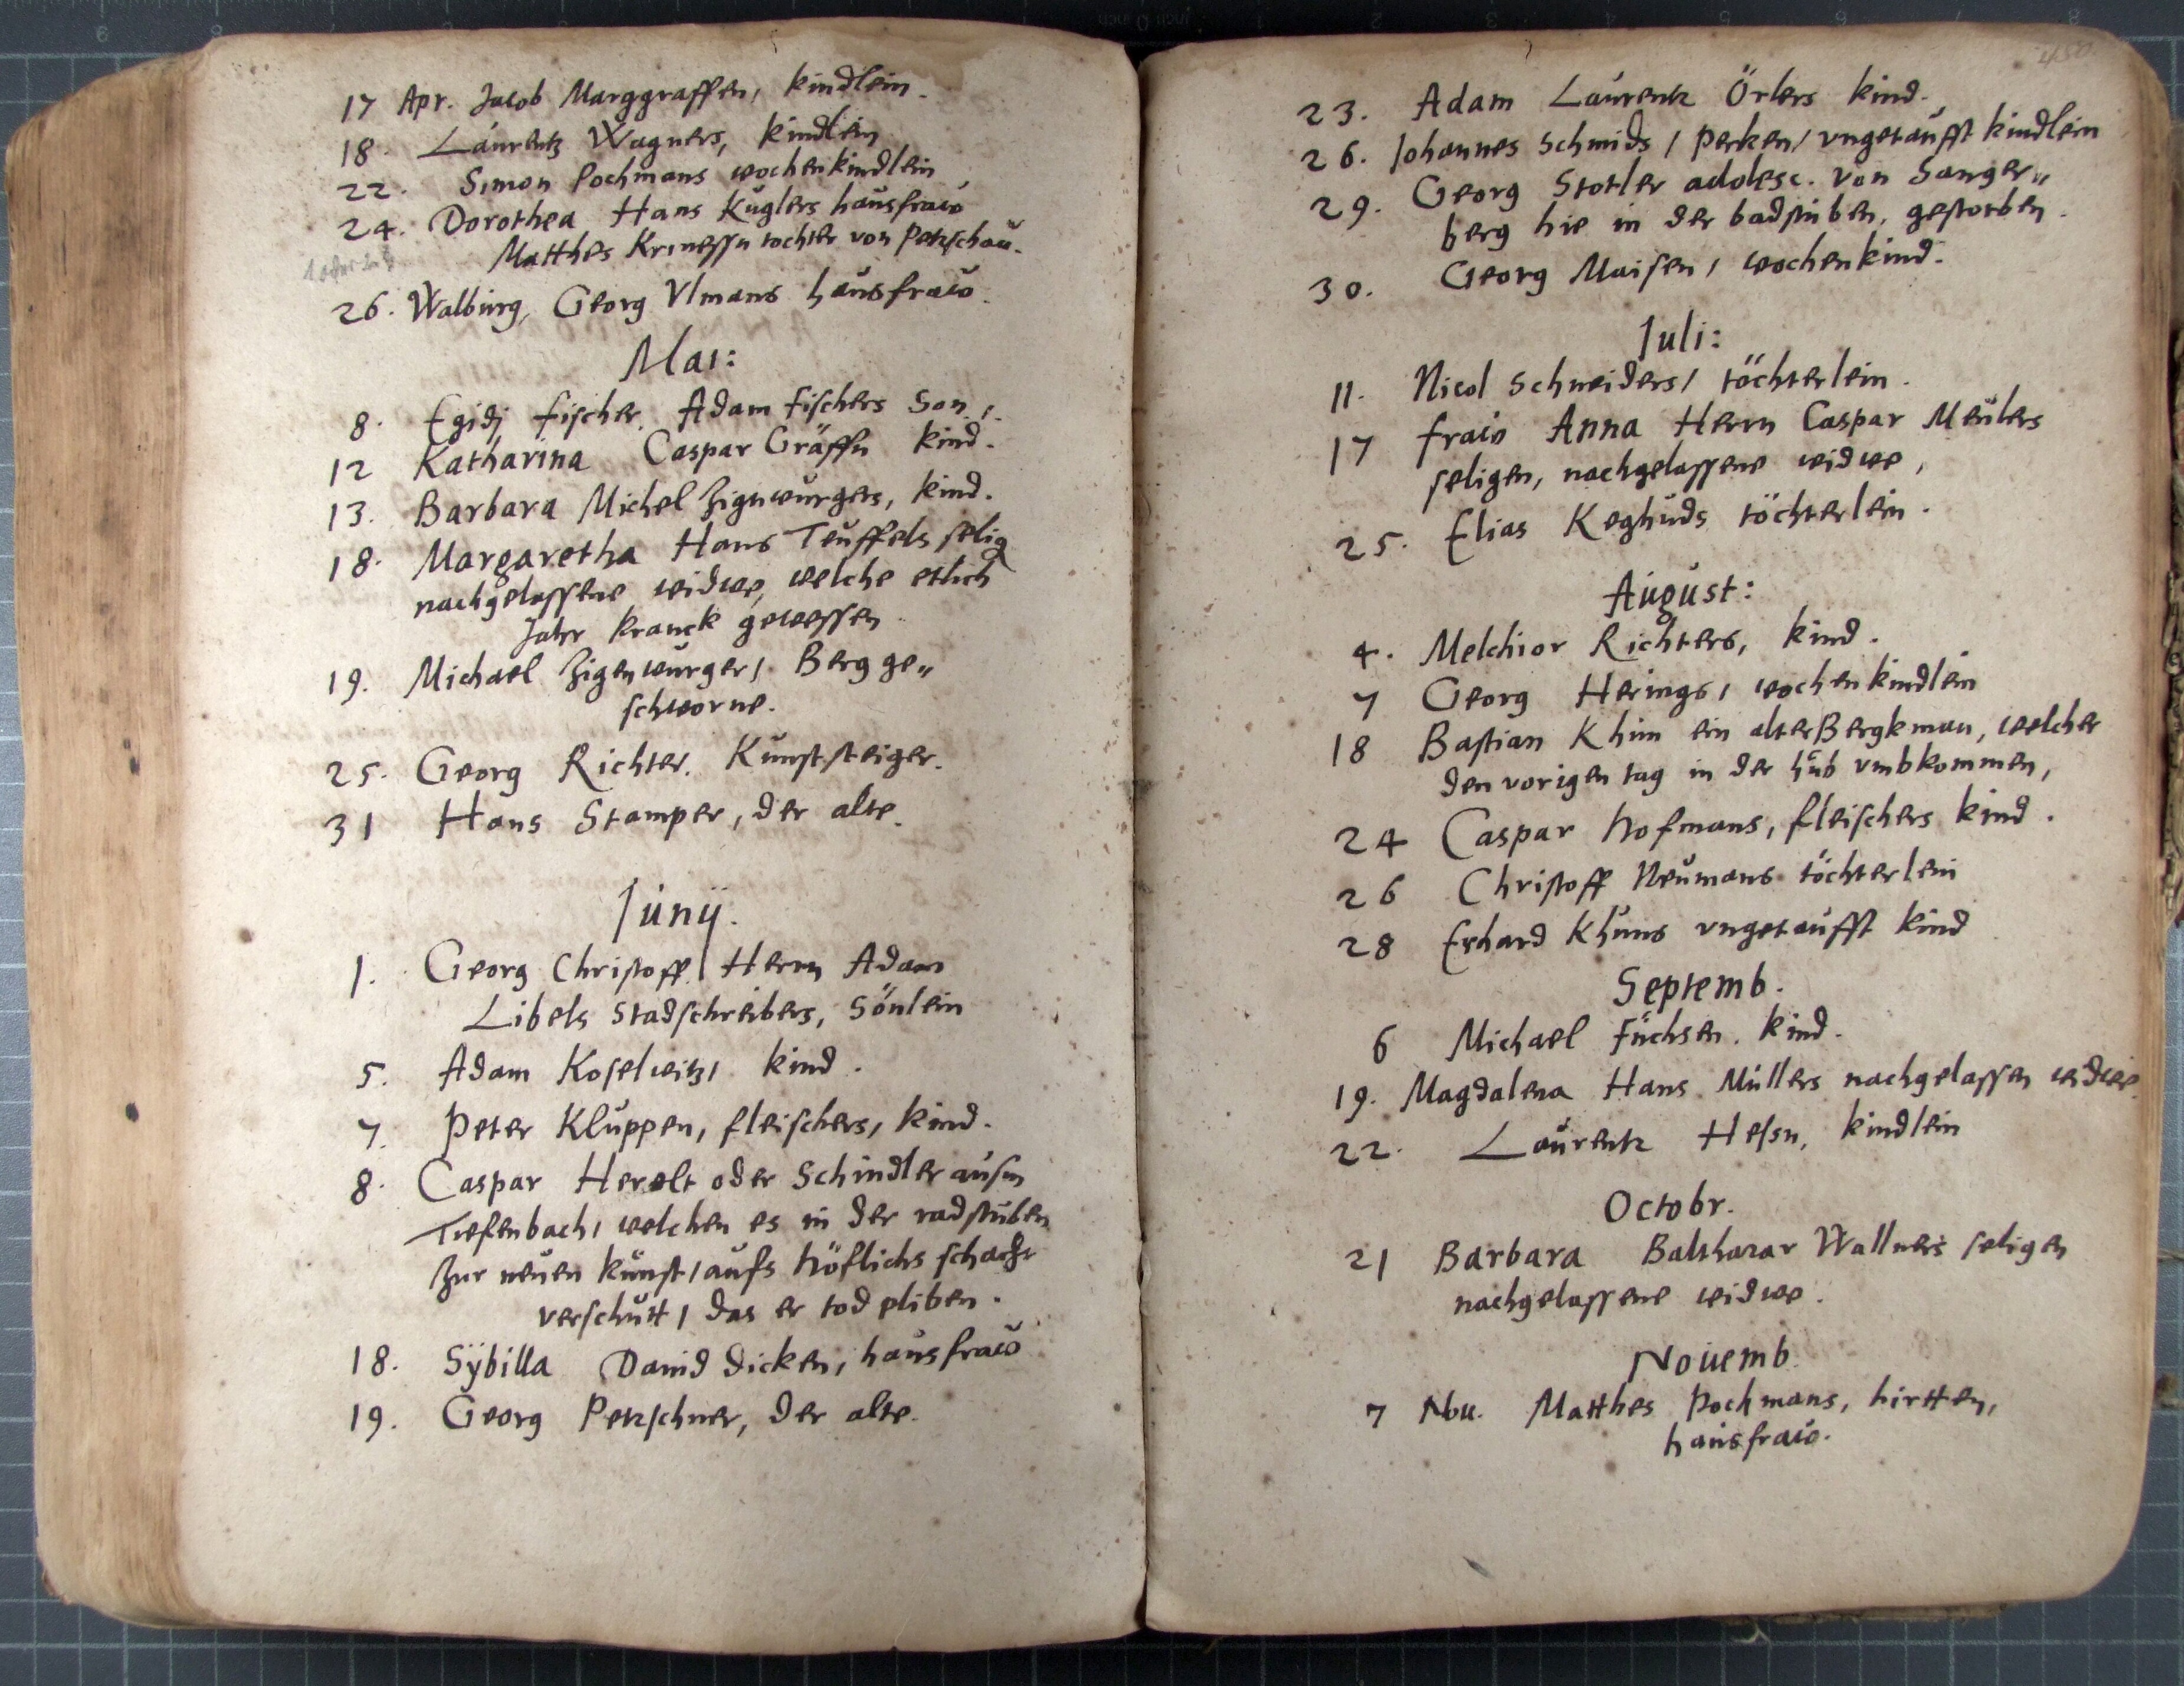 17 Apr. Jacob Marggraffen, kindlein.
18. Laurentz Wagners, kindlein
22. Simon Pochmans wochenkindlein
24. Dorothea Hans Kuglers hausfraw
Matthes Krinessn tochter von Petzschau.
26. Walburg, Georg Vlmans hausfraw.
Mai:
8. Egidj Fischer, Adam Fischers Son,
12 Katharina Caspar Gräffn kind.
13. Barbara Michel Zignwurgers, kind.
18. Margaretha Hans Teuffels selig
nachgelassene widwe, welche etlich
Jahr kranck gewessen
19. Michael Zigenwurger, Berg ge„
schworne.
25. Georg Richter. Kunststeiger.
31 Hans Stamper, der alte.
Junij.
1. Georg Christoff, Herrn Adam
Libels Stadschreibers, Sönlein
5. Adam Koselwitz, kind.
7. Peter Kluppen, fleischers, kind.
8. Caspar Herolt oder Schindler ausm
Tiefenbach, welchen es in der radstuben
Zur neuen kunst, aufs höflichs schacht
verschutt, das er tod pliben.
18. Sÿbilla Dauid dicken, hausfraw
19. Georg Petzschner, der alte.
450.
23. Adam Laurentz Örlers kind.
26. Johannes Schmids, Perken, vngetaufft kindlein
29. Georg Stotler adolesc. von Sanger„
berg hie in der badstuben, gestorben.
30. Georg Maisen, wochenkind.
Juli:
11. Nicol Schneiders, töchterlein.
17 fraw Anna Herrn Caspar Meulers
seligen, nachgelassene widwe,
25. Elias Keghuds töchterlein.
August:
4. Melchior Richters, kind.
7 Georg Herings, wochenkindlein
18 Bastian Khun ein alter Bergkman, welcher
den vorigen tag in der hub vmbkommen,
24 Caspar Hofmans, fleischers kind.
26 Christoff Neumans töchterlein
28 Erhard Khuns vngetaufft kind
Septemb.
6 Michael Füchsen. kind.
19. Magdalena Hans Müllers nachgelassen widwe.
22. Laurentz Hessn, kindlein
Octobr.
21 Barbara Balthazar Wallners seligen
nachgelassene widwe.
Nouemb.
7 Nou. Matthes Pochmans, hirtten,
hausfraw.